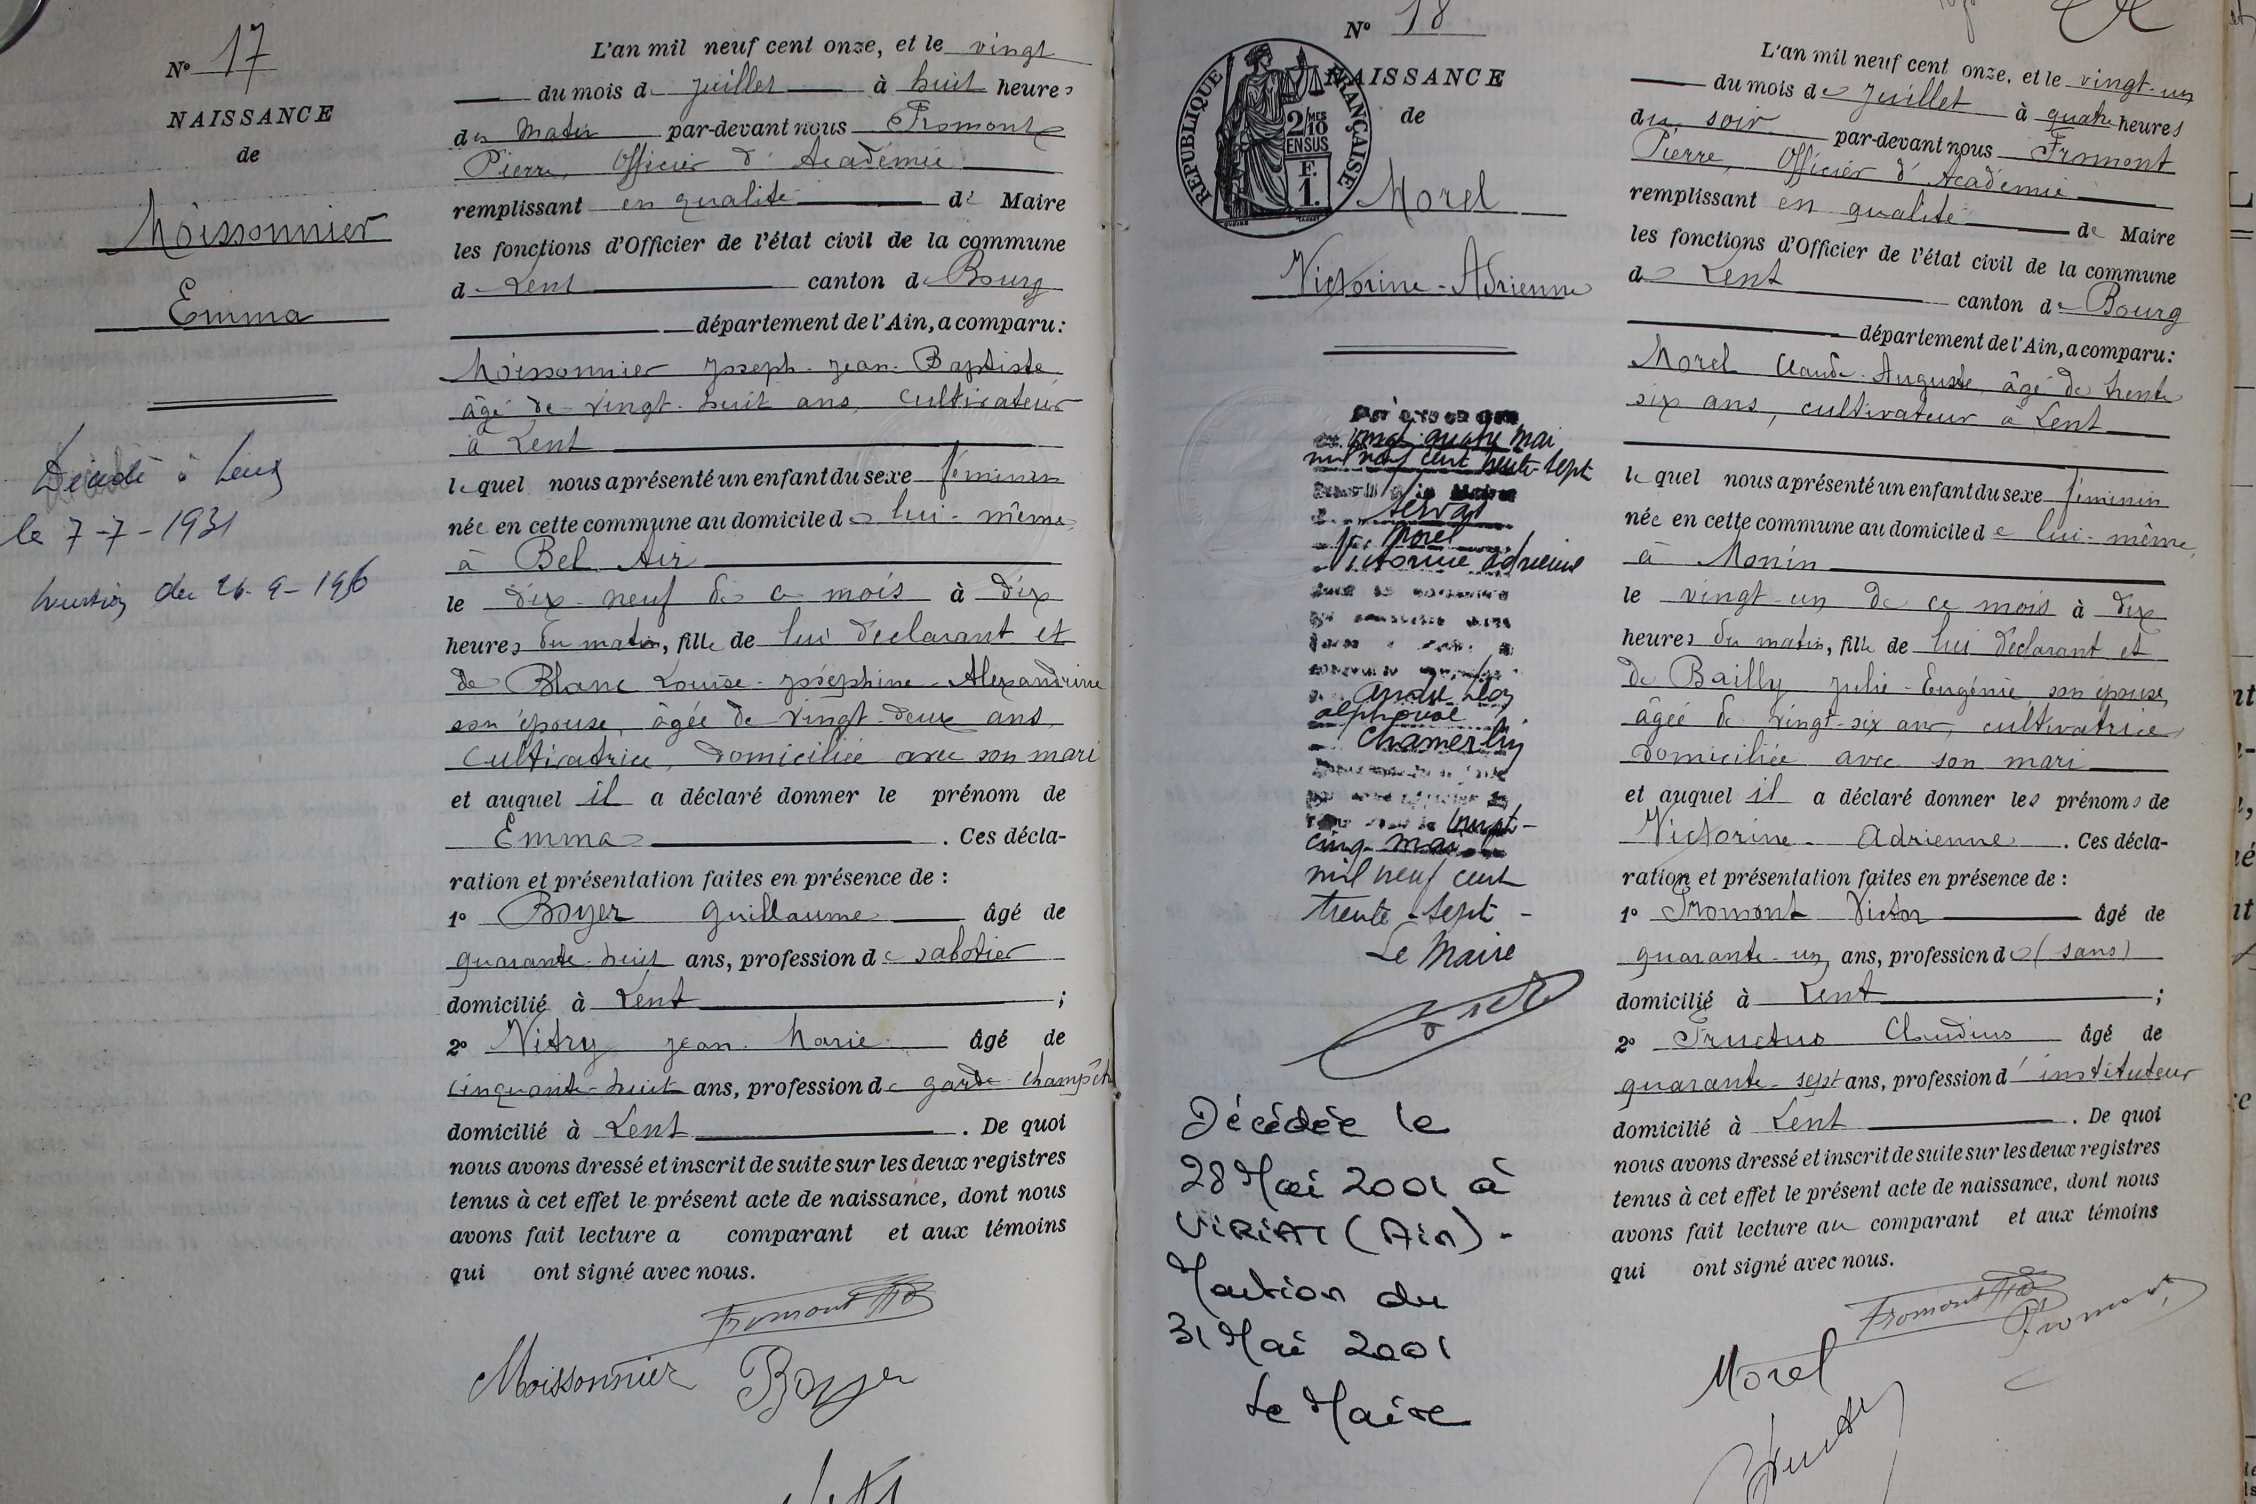 N° 17
NAISSANCE
de
Moissonnier
Emma
Décédé à Lent
le 7-7-1931
du 26-9-196
L'an mil neuf cent onze, et le vingt
du mois de juillet à huit heures
du matin par-devant nous Fromont
Pierre, Officier d'Académie
remplissant en qualité de Maire
les fonctions d'Officier de l'état civil de la commune
de Lent canton de Bourg
département de l'Ain, a comparu :
Moissonnier Joseph-Jean-Baptiste
âgé de vingt-huit ans, cultivateur
à Lent
lequel nous a présenté un enfant du sexe féminin
née en cette commune au domicile de lui-même
à Bel Air
le dix-neuf de ce mois à dix
heures du matin, fille de lui déclarant et
de Blanc Louise-Joséphine-Alexandrine
son épouse, âgée de vingt-deux ans,
cultivatrice, domiciliée avec son mari
et auquel il a déclaré donner le prénom de
Emma . Ces décla-
ration et présentation faites en présence de :
1° Boyer Guillaume âgé de
quarante-huit ans, profession de sabotier
domicilié à Lent ;
2° Vitry Jean-Marie âgé de
cinquante-huit ans, profession de garde-champêtre
domicilié à Lent . De quoi
nous avons dressé et inscrit de suite sur les deux registres
tenus à cet effet le présent acte de naissance, dont nous
avons fait lecture a comparant et aux témoins
qui ont signé avec nous.
Fromont
Moissonnier Boyer
N° 18
NAISSANCE
de
RÉPUBLIQUE FRANÇAISE
2/10 MES
EN SUS
F.
1.
Morel
Victorine-Adrienne
vingt quatre mai
mil neuf cent trente-sept
Servas
Morel
Victorine Adrienne
alphonse
mai
mil neuf cent
trente-sept-
Le Maire
Décédée le
28 Mai 2001 à
VIRIAT (Ain)-
Mention du
31 Mai 2001
Le Maire
L'an mil neuf cent onze, et le vingt-un
du mois de juillet à quatre heures
du soir par-devant nous Fromont
Pierre, Officier d'Académie
remplissant en qualité de Maire
les fonctions d'Officier de l'état civil de la commune
de Lent canton de Bourg
département de l'Ain, a comparu :
Morel Claude-Auguste âgé de trente
six ans, cultivateur à Lent
lequel nous a présenté un enfant du sexe féminin
née en cette commune au domicile de lui-même,
à Monin
le vingt-un de ce mois à dix
heures du matin, fille de lui déclarant et
de Bailly Julie-Eugénie, son épouse,
âgée de vingt-six ans, cultivatrice
domiciliée avec son mari
et auquel il a déclaré donner les prénoms de
Victorine-Adrienne . Ces décla-
ration et présentation faites en présence de :
1° Fromont Victor âgé de
quarante-un ans, profession de (sans)
domicilié à Lent ;
2° Fructus Claudius âgé de
quarante-sept ans, profession d'instituteur
domicilié à Lent . De quoi
nous avons dressé et inscrit de suite sur les deux registres
tenus à cet effet le présent acte de naissance, dont nous
avons fait lecture au comparant et aux témoins
qui ont signé avec nous.
Fromont Fromont
Morel